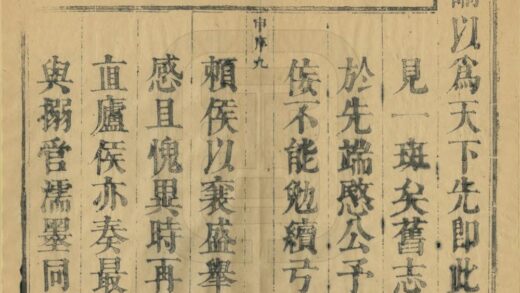 以為天下先即此
見一斑矣舊志
於先端愍公予
侫不能勉續弓
申序九
頼侯以襄盛舉
感且愧異時再
直廬侯亦奏最
與搦管濡墨同